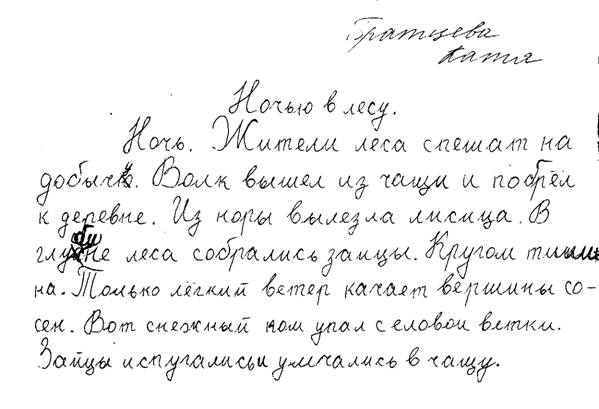 Братцева
Катя
Ночью в лесу.
Ночь. Жители леса спешат на
добычу. Волк вышел из чащи и побрёл
к деревне. Из норы вылезла лисица. В
глубине леса собрались заицы. Кругом тиши
на. Только лёгкий ветер качает вершины со-
сен. Вот снежный ком упал с еловои ветки.
Зайцы испугались и умчались в чащу.